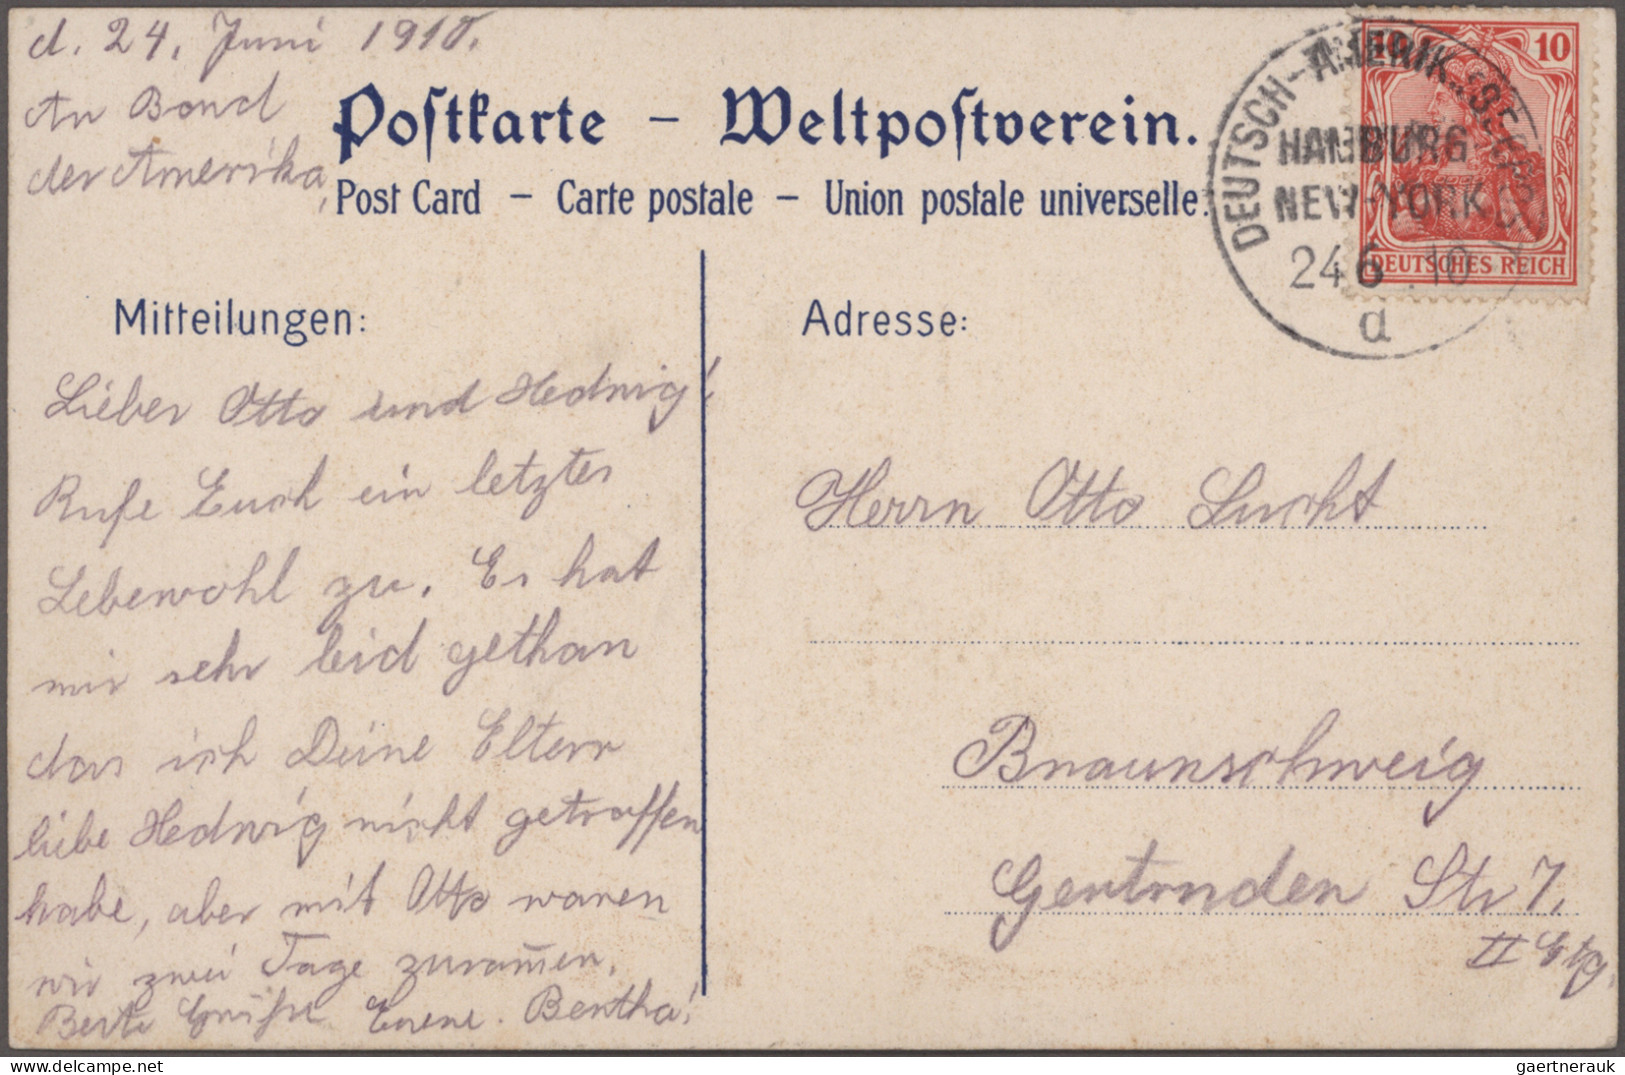 d. 24. Juni 1910.
An Bord
der Amerika,
Postkarte – Weltpostverein.
Post Card – Carte postale – Union postale universelle.
DEUTSCH-AMERIK. SEEPOST
HAMBURG
NEW-YORK
24 6 10
a
10 10
DEUTSCHES REICH
Mitteilungen:
Lieber Otto und Hedwig!
Rufe Euch ein letztes
Lebewohl zu. Es hat
mir sehr leid gethan
das ich Deine Eltern
liebe Hedwig nicht getroffen
habe, aber mit Otto waren
wir zwei Tage zusam̅en.
Beste Grüße Euere Bertha!
Adresse:
Herrn Otto Lucht
Braunschweig
Gertruden Str 7.
II Etg.
gaertnerauk